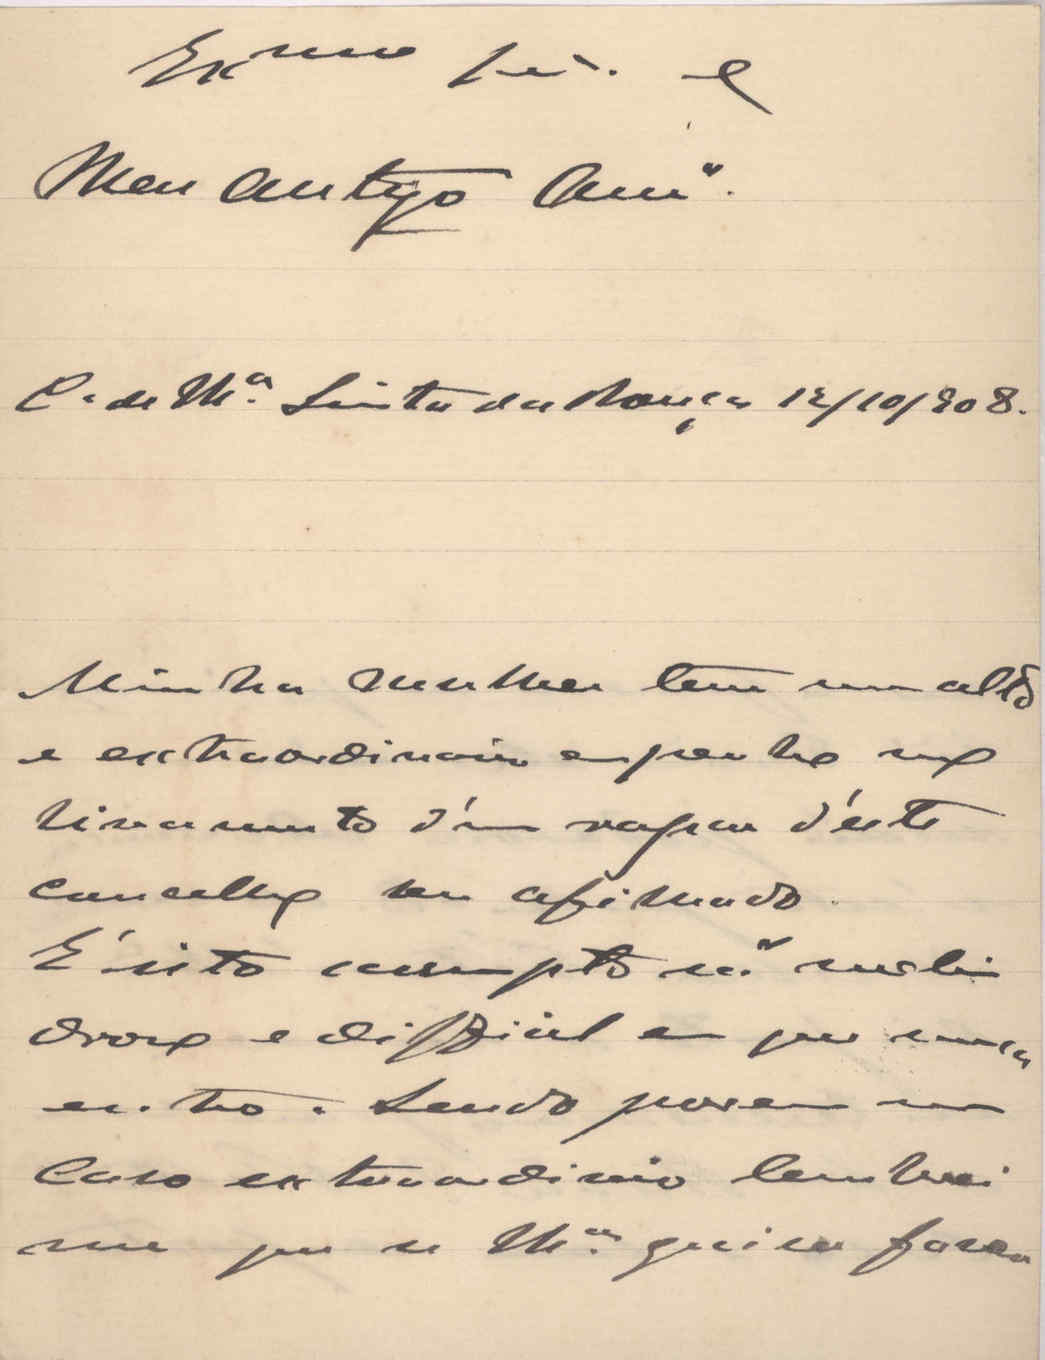 Exmo Snr. e
Meu antigo Amº.
C. de M.ª Quinta da 12/10/908.
Minha mulher tem um alto
e extraordinario empenho no
livramento d'um rapaz d'este
concelho seu afilhado.
É isto assumpto m.º melin
droso e difficil em que nunca
entro. Sendo porem um
caso extraordinario lembrei
me que se quisesse